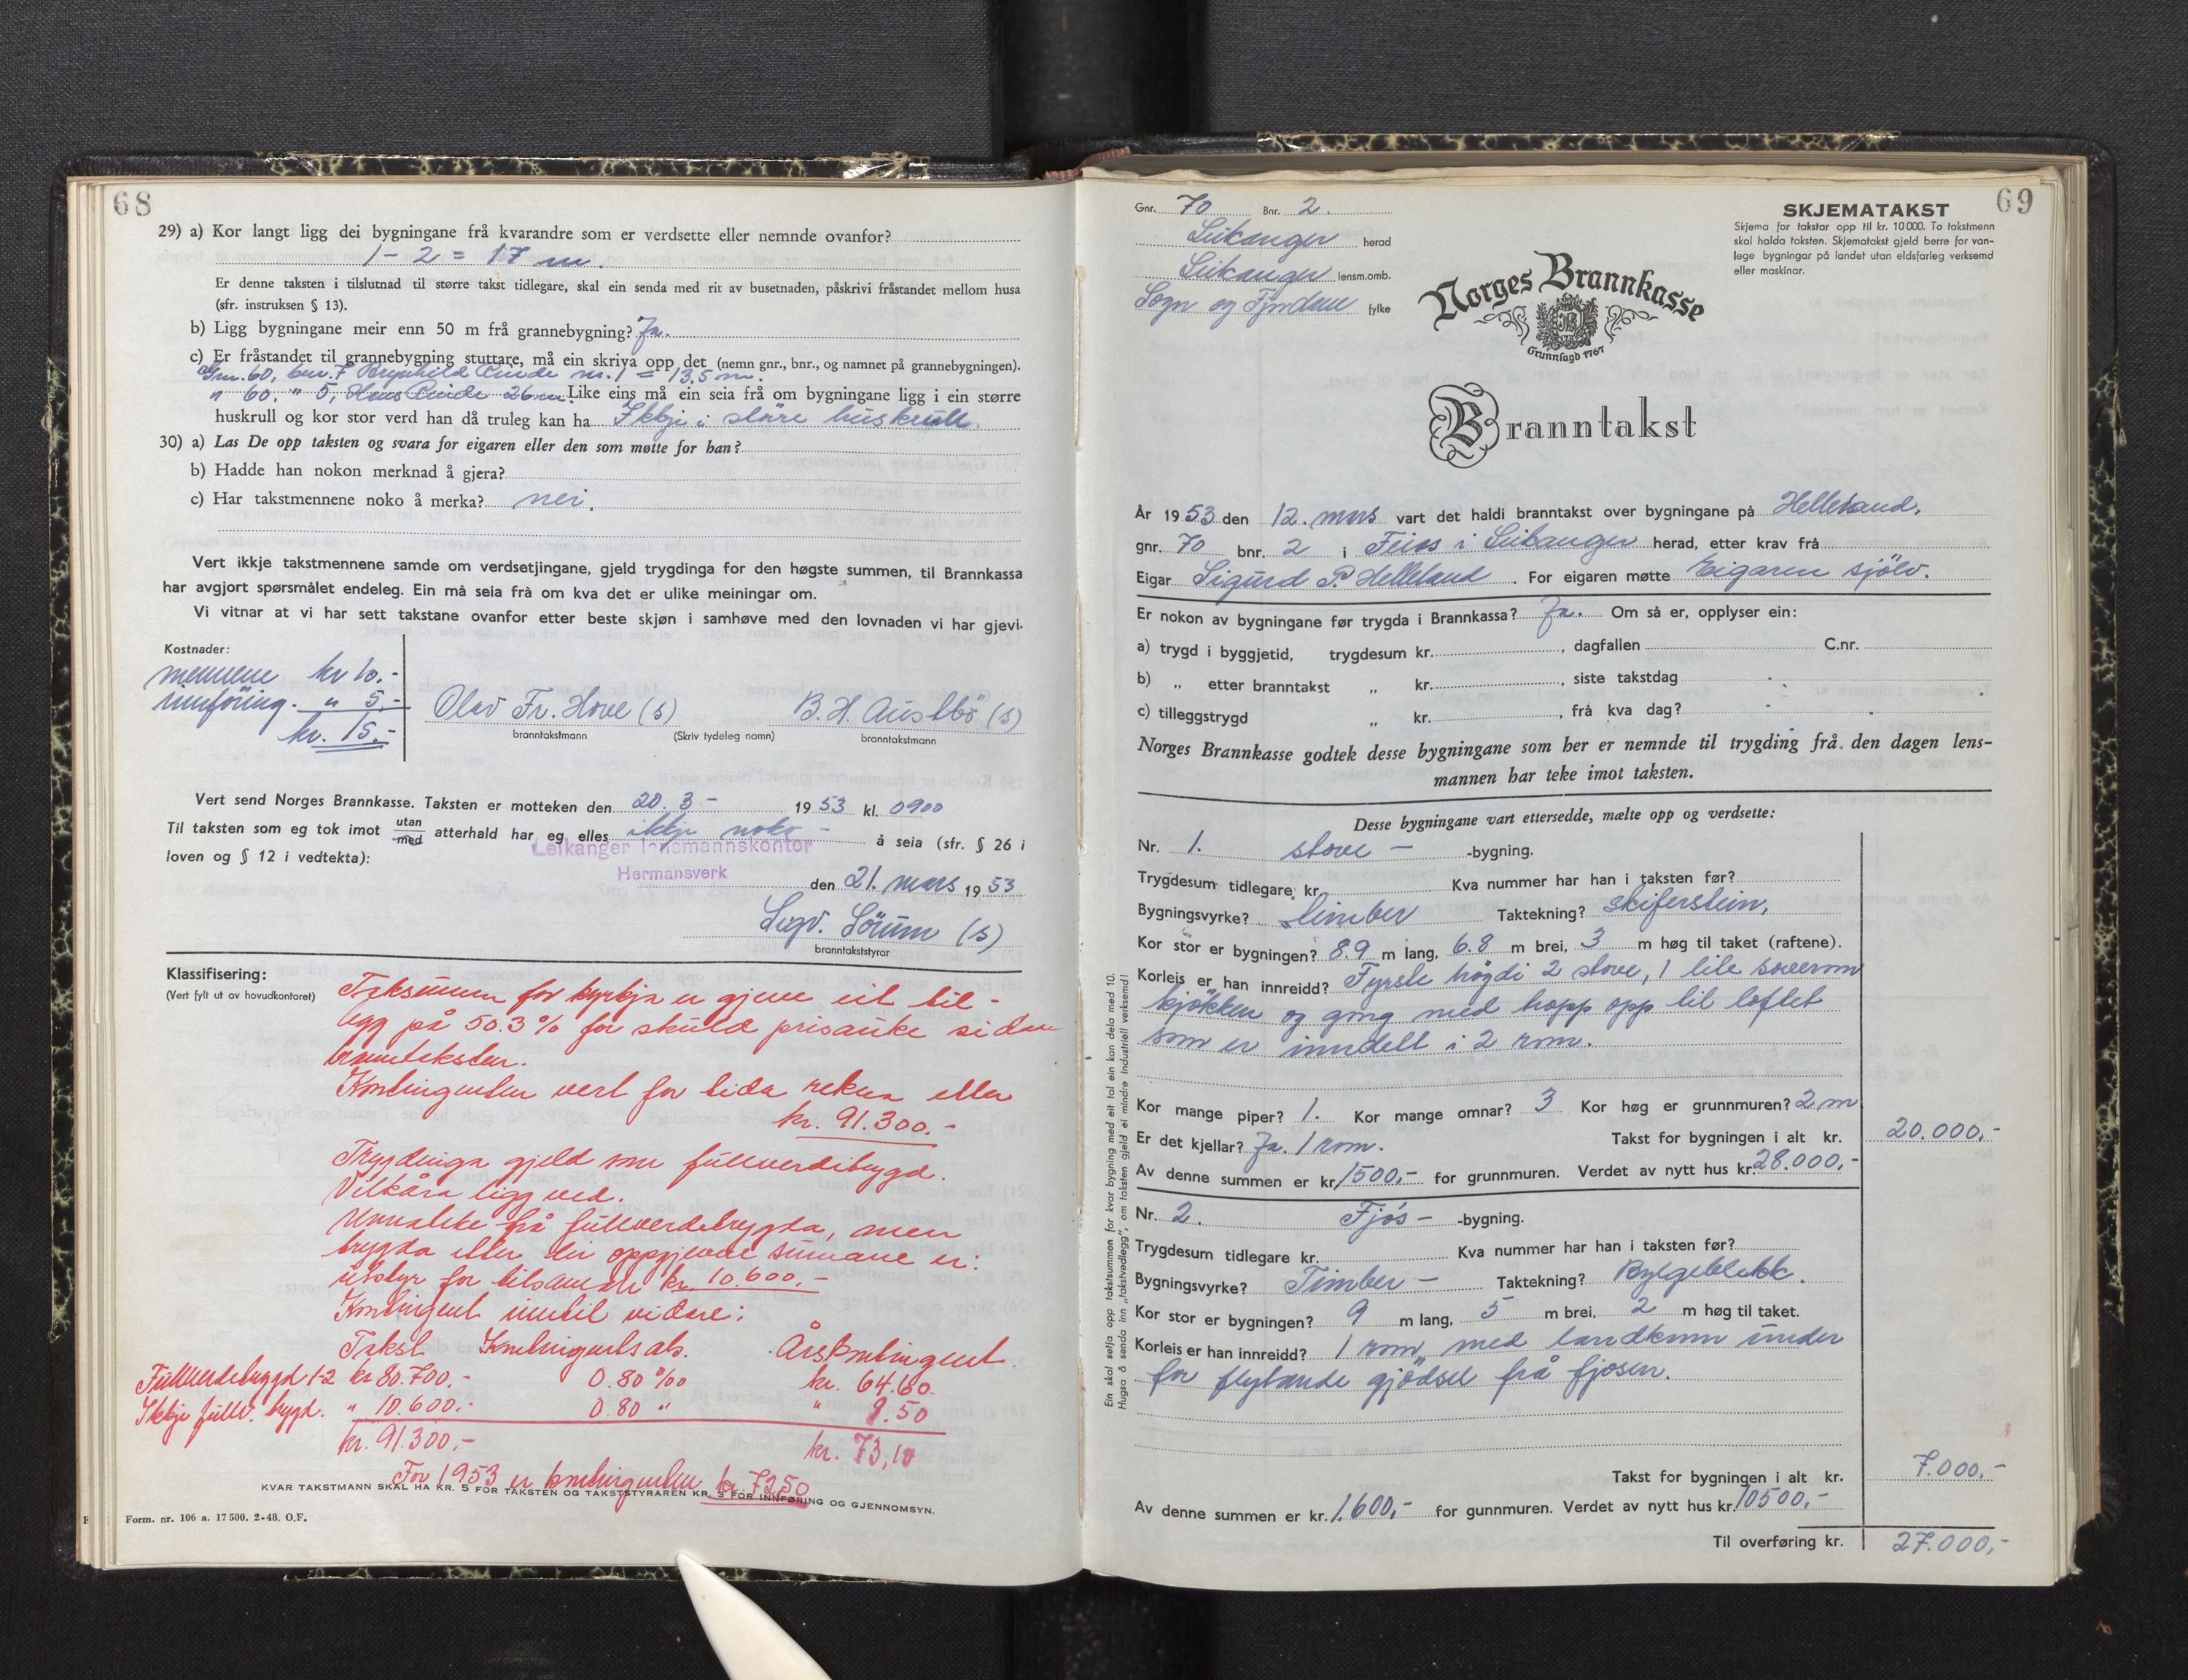 68
29) a) Kor langt ligg dei bygningane frå kvarandre som er verdsette eller nemnde ovanfor?
1 - 2 = 17 m.
Er denne taksten i tilslutnad til større takst tidlegare, skal ein senda med rit av busetnaden, påskrivi fråstandet mellom husa
(sfr. instruksen § 13).
b) Ligg bygningane meir enn 50 m frå grannebygning? Ja.
c) Er fråstandet til grannebygning stuttare, må ein skriva opp det (nemn gnr., bnr., og namnet på grannebygningen).
Gnr. 60, bnr. 7 Brynhild Rinde nr. 1 = 13,5 m.
" 60, " 5, Hans Rinde 26 m. Like eins må ein seia frå om bygningane ligg i ein større
huskrull og kor stor verd han då truleg kan ha Ikkje i støre huskrull.
30) a) Las De opp taksten og svara for eigaren eller den som møtte for han?
b) Hadde han nokon merknad å gjera?
c) Har takstmennene noko å merka? nei.
Vert ikkje takstmennene samde om verdsetjingane, gjeld trygdinga for den høgste summen, til Brannkassa
har avgjort spørsmålet endeleg. Ein må seia frå om kva det er ulike meiningar om.
Vi vitnar at vi har sett takstane ovanfor etter beste skjøn i samhøve med den lovnaden vi har gjevi.
Kostnader:
mennene kr 10.-
innføring. " 5.-
kr. 15.-
Olav Fr. Hove (s) B. H. Austbø (s)
branntakstmann (Skriv tydeleg namn) branntakstmann
Vert send Norges Brannkasse. Taksten er motteken den 20. 3 - 1953 kl. 0900
Til taksten som eg tok imot utan/med atterhald har eg elles ikkje noko - å seia (sfr. § 26 i
loven og § 12 i vedtekta):
Leikanger lensmannskontor
Hermansverk
den 21. mars 1953
Sigv. Sörum (s)
branntakststyrar
Klassifisering:
(Vert fylt ut av hovudkontoret)
Taksumen for kyrkja er gjeve eit til-
legg på 50.3 % for skuld prisauke sidan
branntaksten.
Kontingenten vert for tida rekna etter
kr. 91.300.-
Trygdinga gjeld som fullverditrygd.
Vilkåra ligg ved.
Unnateke frå fullverdetrygda, men
trygda etter dei oppgjevne sumane er:
utstyr for tilsaman kr. 10.600.-
Kontingent inntil vidare:
Takst Kontingentsats. Årskontingent.
Fullverdetrygd 1-2 kr 80.700.- 0.80 ‰ kr. 64.60
Ikkje fullv. trygd. " 10.600.- 0.80 " " 8.50
kr. 91.300.- kr. 73,10
For 1953 er kontingenten kr. 72.50
KVAR TAKSTMANN SKAL HA KR. 5 FOR TAKSTEN OG TAKSTSTYRAREN KR. 3 FOR INNFØRING OG GJENNOMSYN.
Form. nr. 106 a. 17 500. 2-48. O.F.
69
Gnr. 70 Bnr. 2.
Leikanger herad
Leikanger lensm.omb.
Sogn og Fjordane fylke
SKJEMATAKST
Skjema for takstar opp til kr. 10 000. To takstmenn
skal halda taksten. Skjematakst gjeld berre for van-
lege bygningar på landet utan eldsfarleg verksemd
eller maskinar.
Norges Brannkasse
Grunnlagd 1767
Branntakst
År 1953 den 12. mars vart det haldi branntakst over bygningane på Helleland.
gnr. 70 bnr. 2 i Feios i Leikanger herad, etter krav frå
Eigar Sigurd P. Helleland. For eigaren møtte Eigaren sjölv.
Er nokon av bygningane før trygda i Brannkassa? Ja. Om så er, opplyser ein:
a) trygd i byggjetid, trygdesum kr. , dagfallen C.nr.
b) „ etter branntakst „ kr. , siste takstdag
c) tilleggstrygd „ kr. , frå kva dag?
Norges Brannkasse godtek desse bygningane som her er nemnde til trygding frå den dagen lens-
mannen har teke imot taksten.
Desse bygningane vart ettersedde, mælte opp og verdsette:
Nr. 1. stove - -bygning.
Trygdesum tidlegare kr. Kva nummer har han i taksten før?
Bygningsvyrke? timber Taktekning? skiferstein,
Kor stor er bygningen? 8.9 m lang, 6.8 m brei, 3 m høg til taket (raftene).
Korleis er han innreidd? Fyrste högdi 2 stove, 1 lite soverom
kjøkken og gong med tropp opp til loftet
som er inndelt i 2 rom.
Kor mange piper? 1. Kor mange omnar? 3 Kor høg er grunnmuren? 2 m
Er det kjellar? Ja. 1 rom. Takst for bygningen i alt kr. 20.000,-
Av denne summen er kr 1500,- for grunnmuren. Verdet av nytt hus kr. 28.000,-
Nr. 2. Fjös - -bygning.
Trygdesum tidlegare kr. Kva nummer har han i taksten før?
Bygningsvyrke? Timber - Taktekning? Bylgeblekk.
Kor stor er bygningen? 9 m lang, 5 m brei, 2 m høg til taket.
Korleis er han innreidd? 1 rom, med landkum under
for flytande gjödsel frå fjosen.
Takst for bygningen i alt kr. 7.000,-
Av denne summen er kr. 1.600,- for gunnmuren. Verdet av nytt hus kr. 10500,-
Til overføring kr. 27.000,-
Ein skal setja opp takstsummen for kvar bygning med eit tal ein kan dela med 10.
Hugsa å senda inn „takstvedlegg", om taksten gjeld ei mindre industriell verksemd!